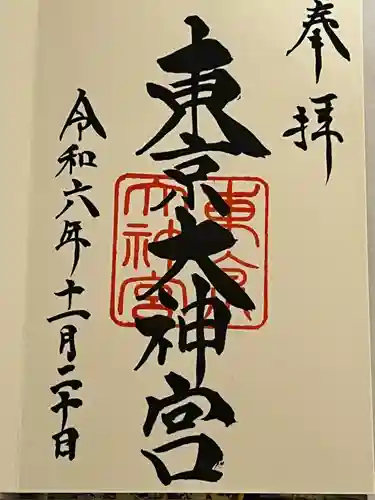 奉拝
東京大神宮
東京大神宮
令和六年十一月二十日